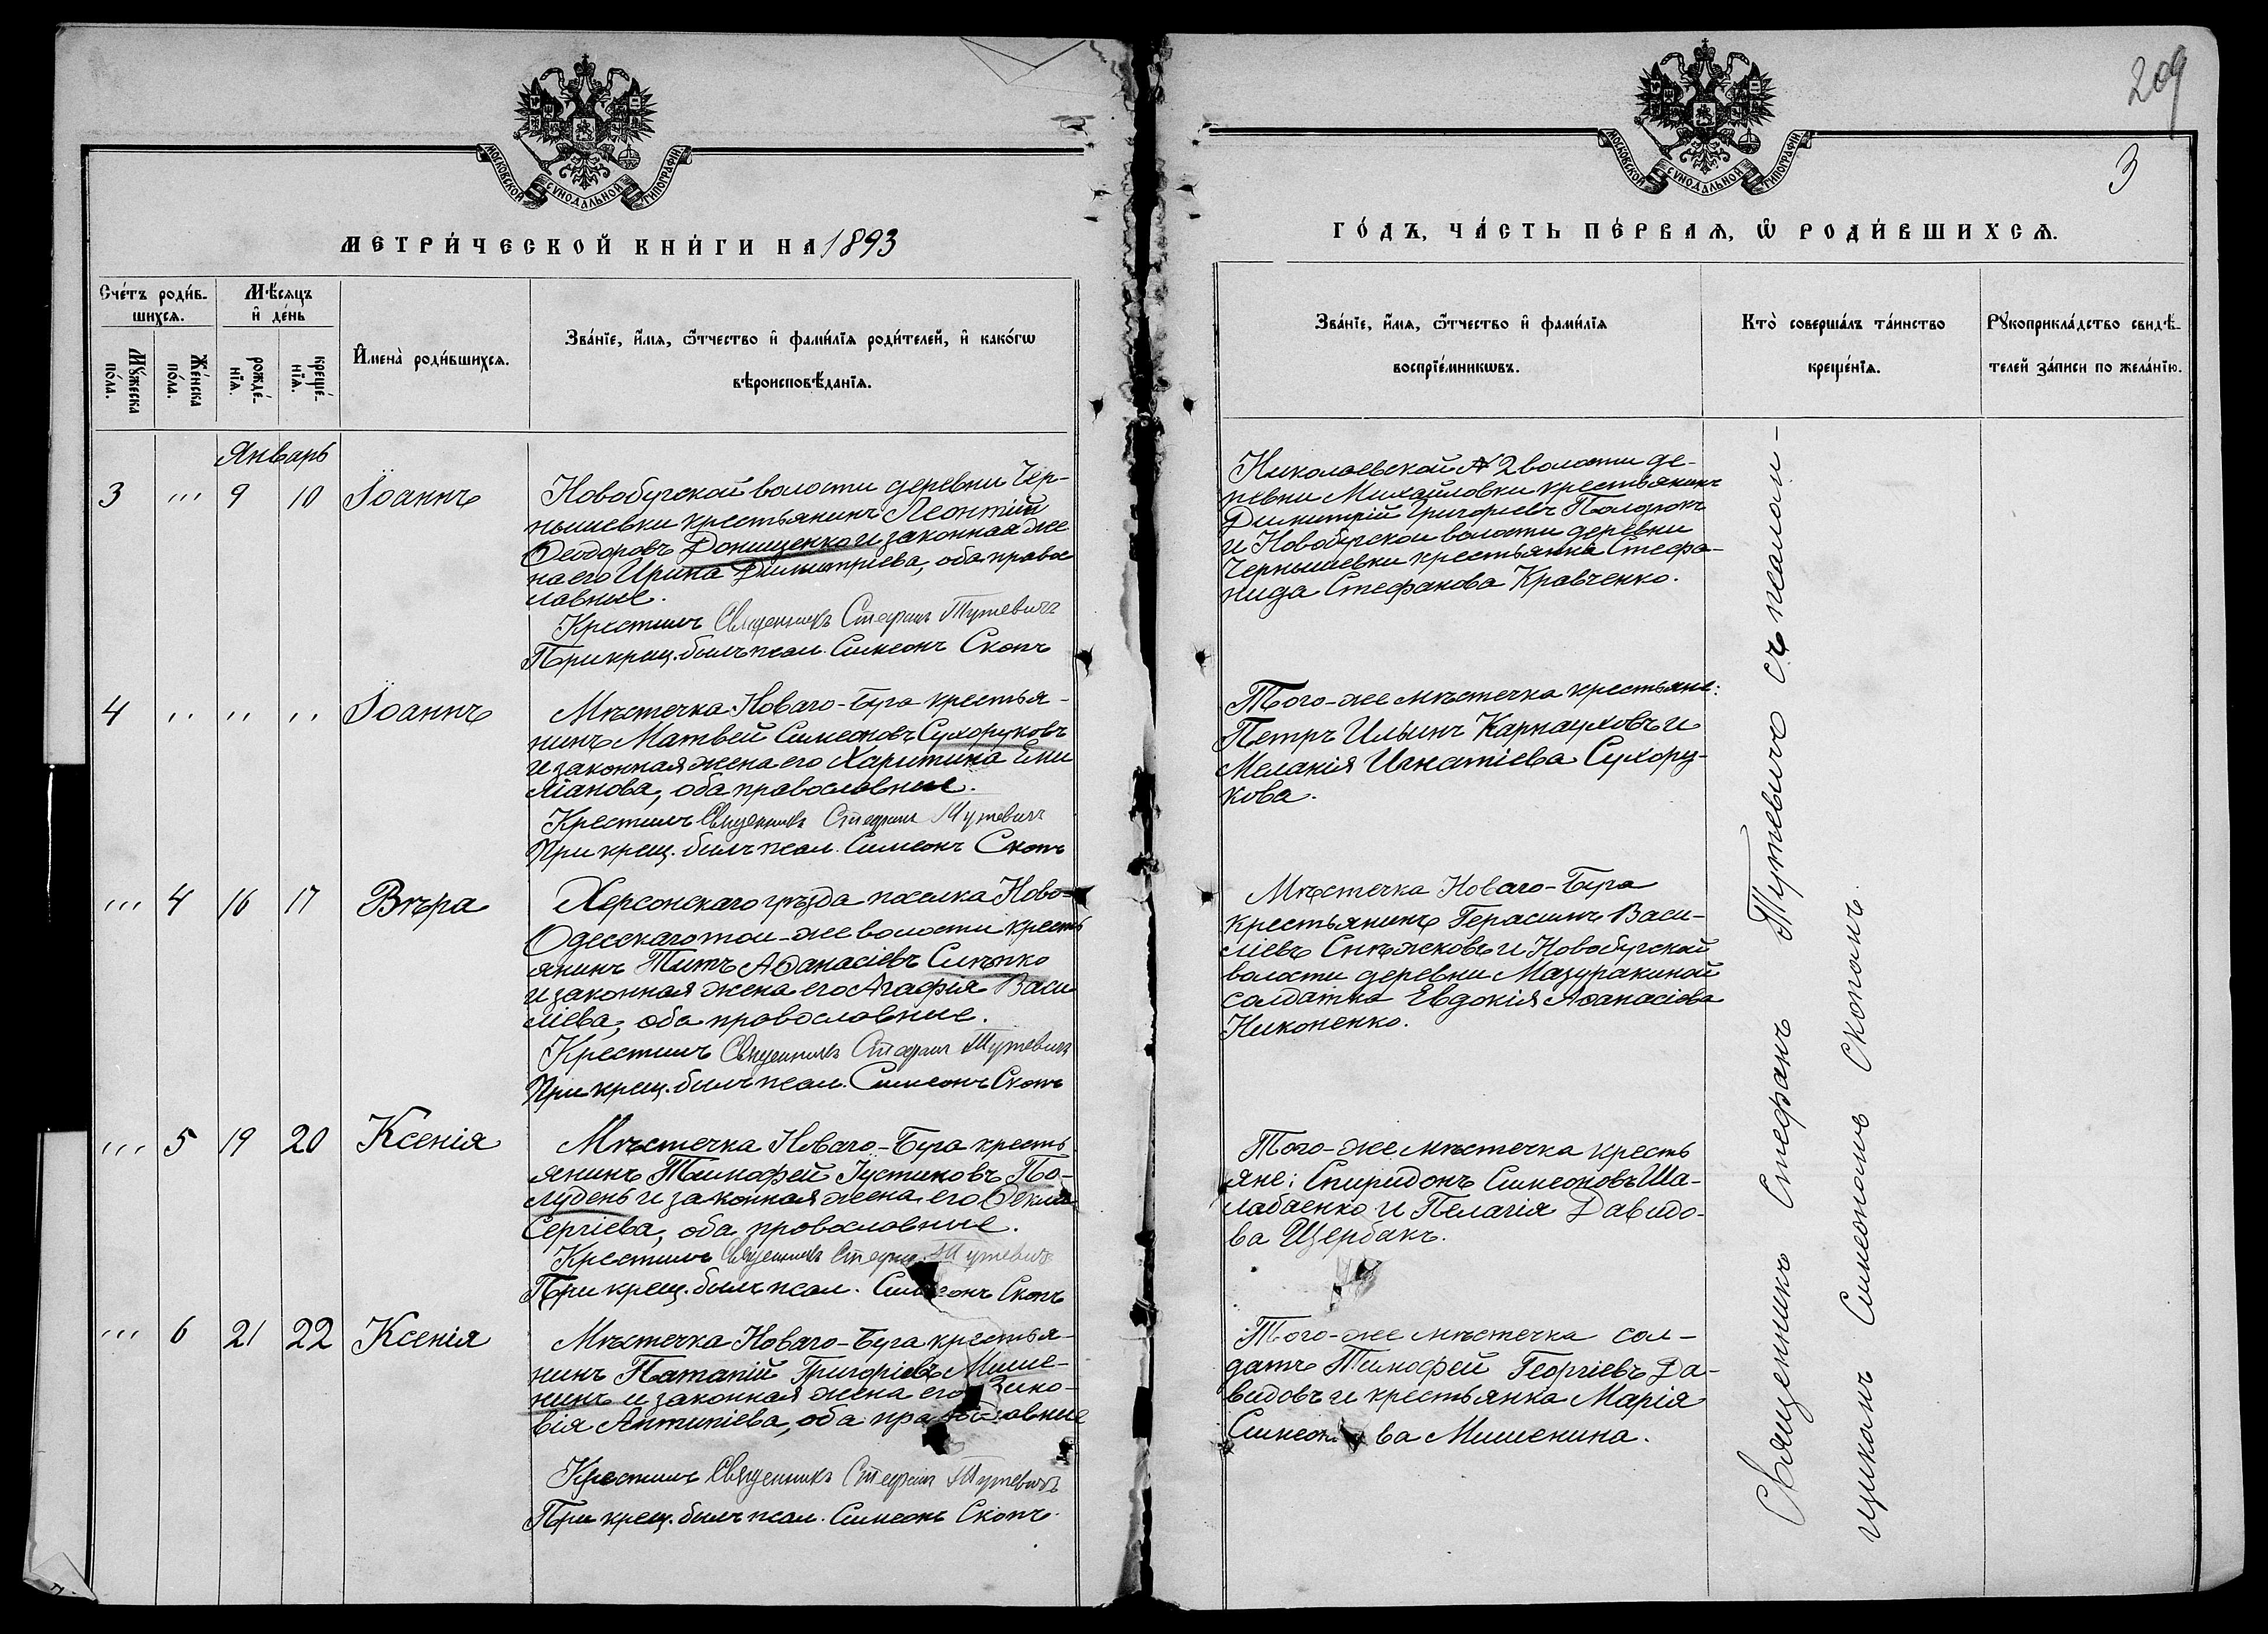 209
3
МОСКОВСКОЙ СѴНОДАЛЬНОЙ ТИПОГРАФІИ
МОСКОВСКОЙ СѴНОДАЛЬНОЙ ТИПОГРАФІИ
МЕТРИ́ЧЕСКОЙ КНИ́ГИ НА 1893
ГО́ДЪ, ЧА́СТЬ ПЕ́РВАѦ, Ѡ РОДИ́ВШИХСѦ.
Сче́тъ роди́в-
шихсѧ.
Мѣ́сѧцъ
и҆ де́нь
Мꙋ́жеска
по́ла.
Же́нска
по́ла.
рожде́-
нїѧ.
креще́-
нїѧ.
И҆мена̀ роди́вшихсѧ.
Зва́нїе, и҆́мѧ, ѻ҆́тчество и҆ фами́лїѧ роди́телей, и҆ како́гѡ
вѣроисповѣ́данїѧ.
Зва́нїе, и҆́мѧ, ѻ҆́тчество и҆ фами́лїѧ
воспрїе́мникѡвъ.
Кто̀ соверша́лъ та́инство
креще́нїѧ.
Рꙋкоприкла́дство свидѣ́-
телей за́писи по жела́нїю.
Январь
3 ,,, 9 10 Іоаннъ
Новобугской волости деревни Чер-
нышевки крестьянинъ Леонтій
Ѳеодоровъ Донищенко и законная же
на его Ирина Димитріева, оба право
славные.
Крестилъ Священникъ Стефанъ Тутевичъ
При крещ. былъ псал. Симеонъ Скопъ
Николаевской № 2 волости де-
ревни Михайловки крестьянинъ
Димитрій Григорьевъ
и Новобугской волости деревни
Чернышевки крестьянка Стефа-
нида Стефанова Кравченко.
4 ,, ,, ,, Іоаннъ
Мѣстечка Новаго-Буга крестья-
нинъ Матвей Симеоновъ Сухоруковъ
и законная жена его Харитина Еми
ліанова, оба православные.
Крестилъ Священникъ Стефанъ Тутевичъ
При крещ. былъ псал. Симеонъ Скопъ
Того-же мѣстечка крестьяне:
Петръ Ильинъ Карнауховъ и
Меланія Игнатіева Сухору-
кова.
,,, 4 16 17 Вѣра
Херсонскаго уѣзда поселка Ново-
Одесскаго той-же волости кресть
янинъ Титъ Аѳанасіевъ Слѣпко
и законная жена его Агафія Васи
ліева, оба православные.
Крестилъ Священникъ Стефанъ Тутевичъ
При крещ. былъ псал. Симеонъ Скопъ
Мѣстечка Новаго-Буга
крестьянинъ Герасимъ Васи-
ліевъ Снѣжковъ и Новобугской
волости деревни Мазуракиной
солдатка Евдокія Аѳанасіева
Никоненко.
,,, 5 19 20 Ксенія
Мѣстечка Новаго-Буга кресть
янинъ Тимофей Іустиновъ По-
лудень и законная жена его Ѳекла
Сергіева, оба православные.
Крестилъ Священникъ Стефанъ Тутевичъ
При крещ. былъ псал. Симеонъ Скопъ
Того-же мѣстечка кресть
яне: Спиридонъ Симеоновъ Ша-
лабаенко и Пелагія Давидо-
ва Щербакъ.
,,, 6 21 22 Ксенія
Мѣстечка Новаго-Буга крестья-
нинъ Патапій Григоріевъ Мише-
нинъ и законная жена его Зино-
вія Антипіева, оба православные
Крестилъ Священникъ Стефанъ Тутевичъ
При крещ. былъ псал. Симеонъ Скопъ.
Того-же мѣстечка сол-
датъ Тимофей Георгіевъ Да-
видовъ и крестьянка Марія
Симеонова Мишенина.
Священникъ Стефанъ Тутевичъ съ псалом-
щикомъ Симеономъ Скопомъ.